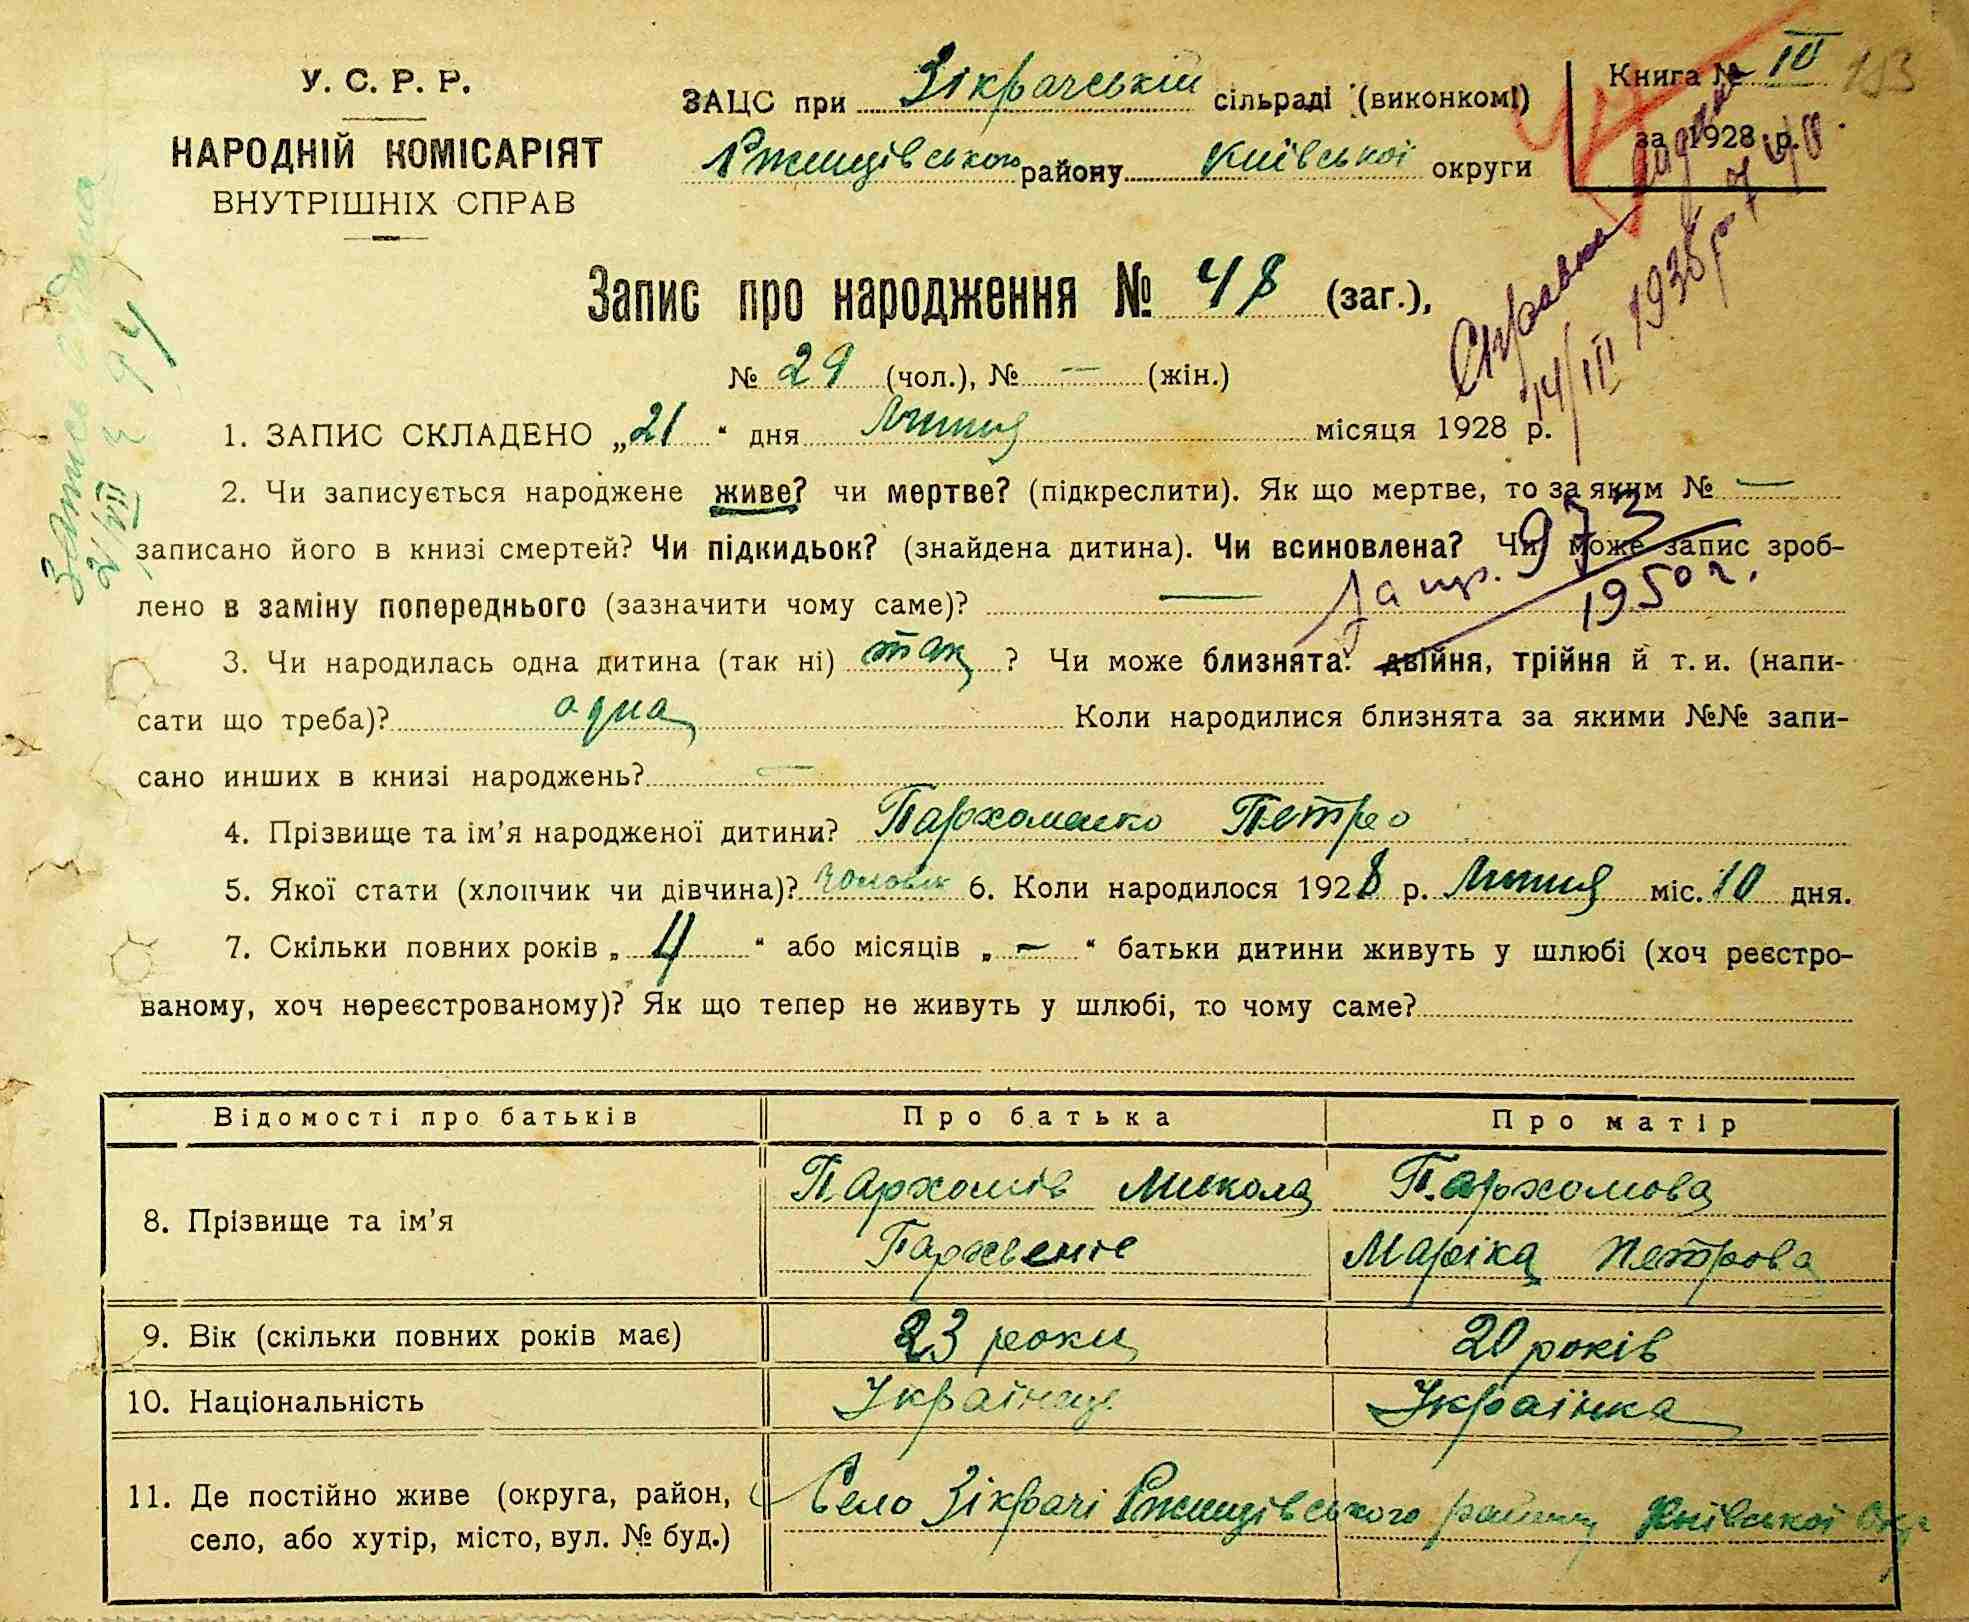 У. С. Р. Р.
НАРОДНІЙ КОМІСАРІЯТ
ВНУТРІШНІХ СПРАВ
ЗАЦС при Зікрачській сільраді (виконкомі)
Ржищівського району Київської округи
Книга № ІV 193
за 1928 р.
Справка
14/III 1938 р.
Запис про народження № 48 (заг.),
№ 29 (чол.), № — (жін.)
1. ЗАПИС СКЛАДЕНО „21“ дня Липня місяця 1928 р.
2. Чи записується народжене живе? чи мертве? (підкреслити). Як що мертве, то за яким № —
записано його в книзі смертей? Чи підкидьок? (знайдена дитина). Чи всиновлена? Чи може запис зроб-
лено в заміну попереднього (зазначити чому саме)? —
973
1950 г.
3. Чи народилась одна дитина (так ні) так? Чи може близнята: двійня, трійня й т. и. (напи-
сати що треба)? одна Коли народилися близнята за якими №№ запи-
сано инших в книзі народжень? —
4. Прізвище та ім’я народженої дитини? Пархоменко Петро
5. Якої стати (хлопчик чи дівчина)? чоловік 6. Коли народилося 1928 р. Липня міс. 10 дня.
7. Скільки повних років „4“ або місяців „–“ батьки дитини живуть у шлюбі (хоч реєстро-
ваному, хоч нереєстрованому)? Як що тепер не живуть у шлюбі, то чому саме?
Відомості про батьків Про батька Про матір
8. Прізвище та ім’я Пархомів Микола Пархомова
Маріка Петрова
9. Вік (скільки повних років має) 23 роки 20 років
10. Національність Українець Українка
11. Де постійно живе (округа, район, село, або хутір, місто, вул. № буд.) Село Зікрачі Ржищівського району Київської Окр